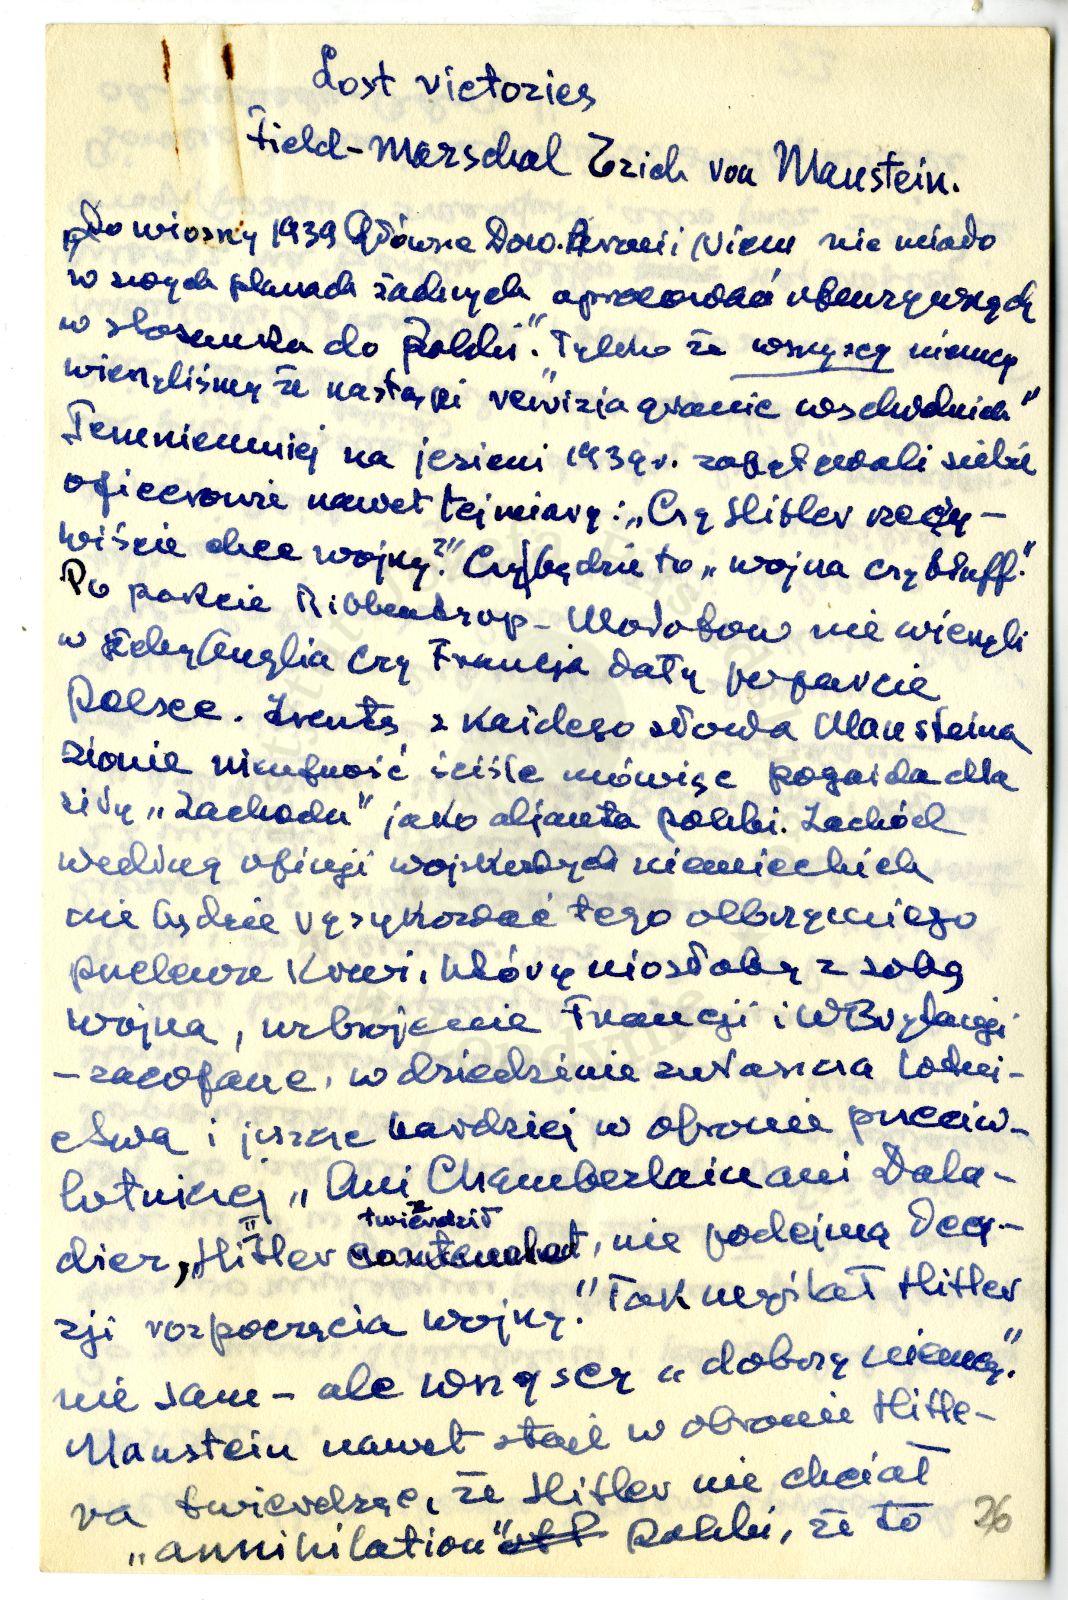 Lost victories
Field-Marschal Erich von Manstein.
„Do wiosny 1939 Główne Dow. Armii Niem nie miało
w swych planach żadnych opracowań ofenzywnych
w stosunku do Polski". Tylko że wszyscy niemcy
wierzyliśmy że nastąpi rewizja granic wschodnich"
Temniemniej na jesieni 1939 r. zapytywali siebie
oficerowie nawet tej miary: „Czy Hitler rzeczy-
wiście chce wojny?" Czy będzie to „wojna czy bluff."
Po pakcie Ribbentrop - Mołotow nie wierzyli
w żeby Anglia czy Francja dały poparcie
Polsce. Zresztą z każdego słowa Mansteina
zionie nieufność ściśle mówiąc pogarda dla
siły „Zachodu" jako aljanta Polski. Zachód
według opinji wojskowych niemieckich
nie będzie ryzykować tego olbrzymiego
przelewu krwi, który niosłaby z sobą
wojna, uzbrojenie Francji i W Brytanji
- zacofane, w dziedzinie zwłaszcza lotni-
ctwa i jeszcze bardziej w obronie przeciw-
lotniczej „Ani Chamberlain ani Dala-
dier, „Hitler twierdził, nie podejmą decy-
zji rozpoczęcia wojny." Tak myślał Hitler
nie sam - ale wszyscy „dobrzy niemcy."
Manstein nawet staje w obronie Hitle-
ra twierdząc, że Hitler nie chciał
„annihilation" Polski, że to
26